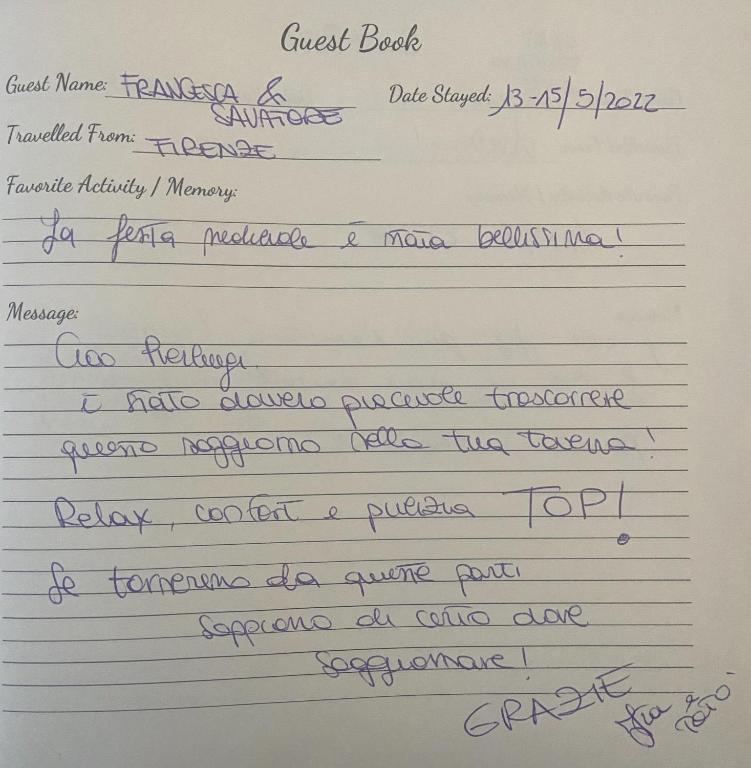 Guest Book
Guest Name: FRANCESCA & Date Stayed: 13-15/5/2022
SALVATORE
Travelled From: FIRENZE
Favorite Activity / Memory:
La festa medievale è stata bellissima!
Message:
Ciao Pierluigi
è stato davvero piacevole trascorrere
questo soggiorno nella tua taverna!
Relax, confort e pulizia TOP!
Se torneremo da queste parti
sappiamo di certo dove
soggiornare!
GRAZIE